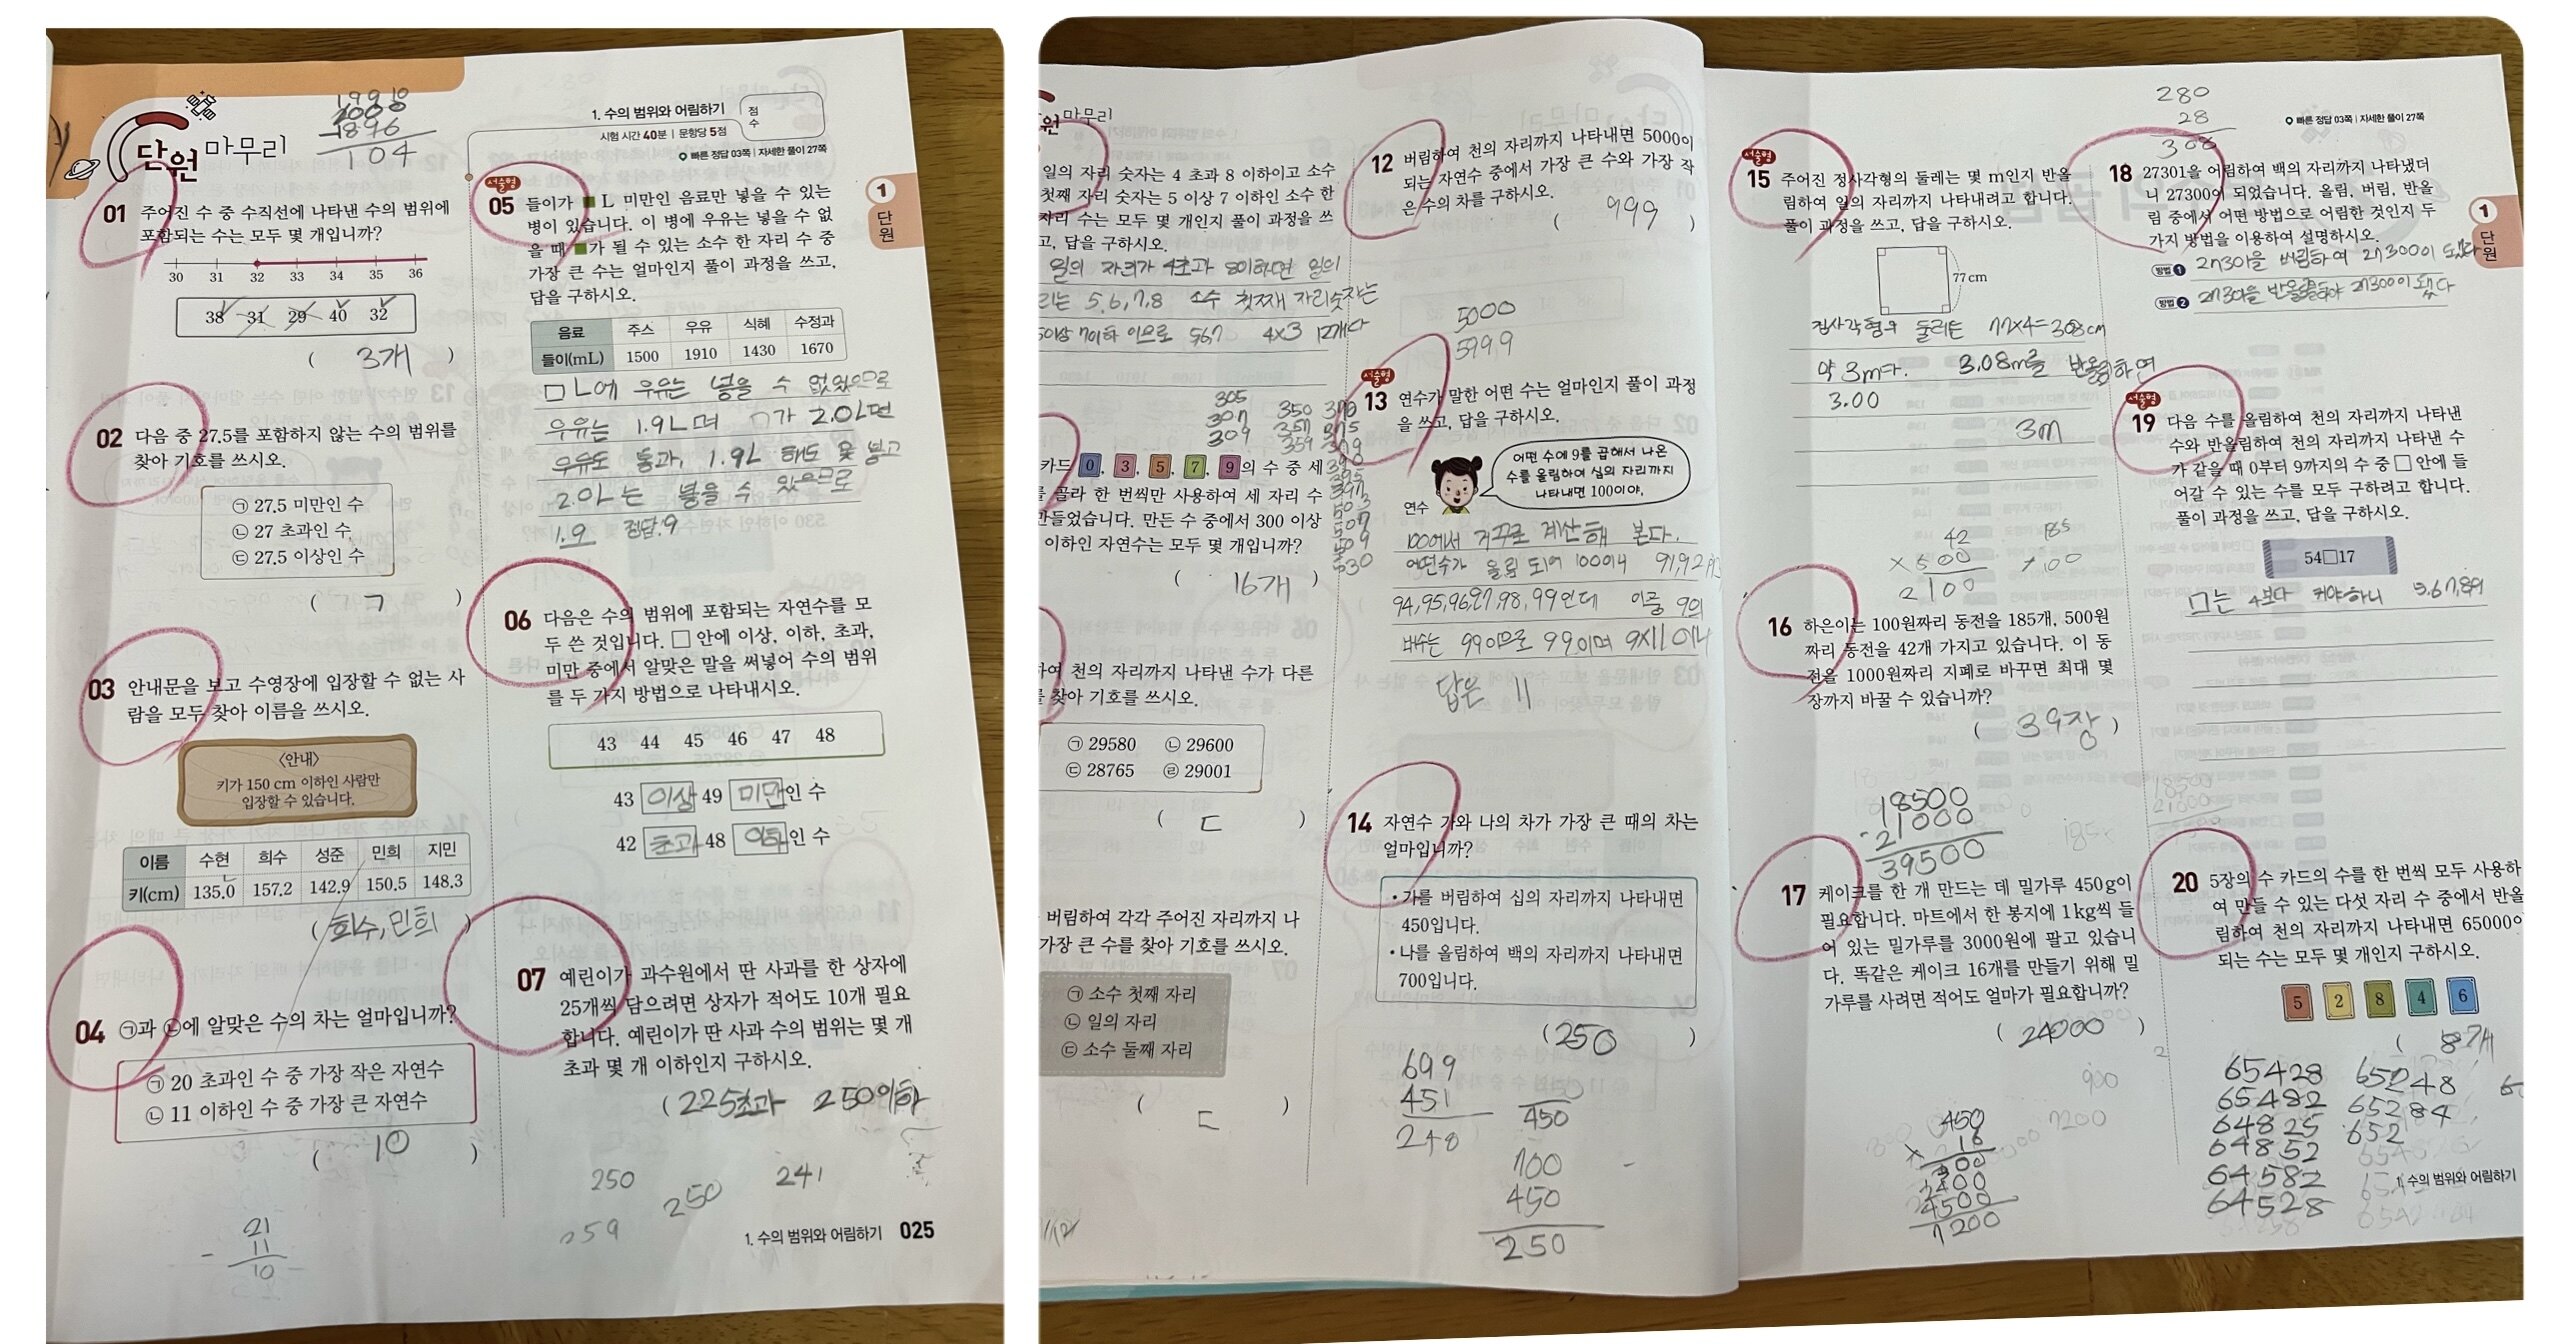 단원 마무리
1990
2000
1896
104
1. 수의 범위와 어림하기
점수
시험 시간 40분 | 문항당 5점
빠른 정답 03쪽 | 자세한 풀이 27쪽
1
단원
01 주어진 수 중 수직선에 나타낸 수의 범위에
포함되는 수는 모두 몇 개입니까?
30 31 32 33 34 35 36
38 31 29 40 32
( 3개 )
02 다음 중 27.5를 포함하지 않는 수의 범위를
찾아 기호를 쓰시오.
㉠ 27.5 미만인 수
㉡ 27 초과인 수
㉢ 27.5 이상인 수
( ㄱ )
03 안내문을 보고 수영장에 입장할 수 없는 사
람을 모두 찾아 이름을 쓰시오.
〈안내〉
키가 150 cm 이하인 사람만
입장할 수 있습니다.
이름 수현 희수 성준 민희 지민
키(cm) 135.0 157.2 142.9 150.5 148.3
( 희수, 민희 )
04 ㉠과 ㉡에 알맞은 수의 차는 얼마입니까?
㉠ 20 초과인 수 중 가장 작은 자연수
㉡ 11 이하인 수 중 가장 큰 자연수
( 10 )
21
- 11
10
서술형
05 들이가 ■ L 미만인 음료만 넣을 수 있는
병이 있습니다. 이 병에 우유는 넣을 수 없
을 때 ■가 될 수 있는 소수 한 자리 수 중
가장 큰 수는 얼마인지 풀이 과정을 쓰고,
답을 구하시오.
음료 주스 우유 식혜 수정과
들이(mL) 1500 1910 1430 1670
□L에 우유는 넣을 수 없있으므로
우유는 1.9L며 □가 2.0L면
우유도 통과, 1.9L 해도 못 넣고
2.0L는 넣을 수 있으므로
1.9 정답.9
06 다음은 수의 범위에 포함되는 자연수를 모
두 쓴 것입니다. □ 안에 이상, 이하, 초과,
미만 중에서 알맞은 말을 써넣어 수의 범위
를 두 가지 방법으로 나타내시오.
43 44 45 46 47 48
43 이상 49 미만인 수
42 초과 48 이하인 수
07 예린이가 과수원에서 딴 사과를 한 상자에
25개씩 담으려면 상자가 적어도 10개 필요
합니다. 예린이가 딴 사과 수의 범위는 몇 개
초과 몇 개 이하인지 구하시오.
( 225초과 250이하
250 250 241
259
1. 수의 범위와 어림하기 025
원 마무리
일의 자리 숫자는 4 초과 8 이하이고 소수
첫째 자리 숫자는 5 이상 7 이하인 소수 한
자리 수는 모두 몇 개인지 풀이 과정을 쓰
고, 답을 구하시오.
일의 자리가 4초과 8이하면 일의
리는 5,6,7,8 소수 첫째 자리숫자는
5이상 7이하 이므로 567 4×3 12개다
305
307
309
350
357
359
370
375
379
390
395
397
503
507
509
530
카드 0, 3, 5, 7, 9의 수 중 세
를 골라 한 번씩만 사용하여 세 자리 수
만들었습니다. 만든 수 중에서 300 이상
이하인 자연수는 모두 몇 개입니까?
( 16개 )
하여 천의 자리까지 나타낸 수가 다른
를 찾아 기호를 쓰시오.
㉠ 29580 ㉡ 29600
㉢ 28765 ㉣ 29001
( ㄷ )
버림하여 각각 주어진 자리까지 나
가장 큰 수를 찾아 기호를 쓰시오.
㉠ 소수 첫째 자리
㉡ 일의 자리
㉢ 소수 둘째 자리
( ㄷ )
12 버림하여 천의 자리까지 나타내면 5000이
되는 자연수 중에서 가장 큰 수와 가장 작
은 수의 차를 구하시오.
( 999 )
5000
5999
서술형
13 연수가 말한 어떤 수는 얼마인지 풀이 과정
을 쓰고, 답을 구하시오.
어떤 수에 9를 곱해서 나온
수를 올림하여 십의 자리까지
나타내면 100이야.
연수
100에서 거꾸로 계산해 본다.
어떤수가 올림 되어 100이니 91,92,93
94,95,96,97,98,99인데 이중 9의
배수는 99이므로 99이며 9×11이니
답은 11
14 자연수 가와 나의 차가 가장 큰 때의 차는
얼마입니까?
• 가를 버림하여 십의 자리까지 나타내면
450입니다.
• 나를 올림하여 백의 자리까지 나타내면
700입니다.
( 250 )
699
451
248
450
700
450
250
빠른 정답 03쪽 | 자세한 풀이 27쪽
1
단원
서술형
15 주어진 정사각형의 둘레는 몇 m인지 반올
림하여 일의 자리까지 나타내려고 합니다.
풀이 과정을 쓰고, 답을 구하시오.
77 cm
정사각형의 둘레는 77×4=308cm
약 3m다. 3.08m를 반올림하면
3.00
3m
42
×500
2100
185
×100
16 하은이는 100원짜리 동전을 185개, 500원
짜리 동전을 42개 가지고 있습니다. 이 동
전을 1000원짜리 지폐로 바꾸면 최대 몇
장까지 바꿀 수 있습니까?
( 39장 )
18500
21000
39500
17 케이크를 한 개 만드는 데 밀가루 450 g이
필요합니다. 마트에서 한 봉지에 1 kg씩 들
어 있는 밀가루를 3000원에 팔고 있습니
다. 똑같은 케이크 16개를 만들기 위해 밀
가루를 사려면 적어도 얼마가 필요합니까?
( 24000 )
900
7200
450
× 16
300
2400
4500
7200
280
28
308
18 27301을 어림하여 백의 자리까지 나타냈더
니 27300이 되었습니다. 올림, 버림, 반올
림 중에서 어떤 방법으로 어림한 것인지 두
가지 방법을 이용하여 설명하시오.
방법 1 27301을 버림하여 27300이 됬다
방법 2 27301을 반올림하여 27300이 됐다
서술형
19 다음 수를 올림하여 천의 자리까지 나타낸
수와 반올림하여 천의 자리까지 나타낸 수
가 같을 때 0부터 9까지의 수 중 □ 안에 들
어갈 수 있는 수를 모두 구하려고 합니다.
풀이 과정을 쓰고, 답을 구하시오.
54□17
□는 4보다 커야하니 5,6,7,8,9
20 5장의 수 카드의 수를 한 번씩 모두 사용하
여 만들 수 있는 다섯 자리 수 중에서 반올
림하여 천의 자리까지 나타내면 65000이
되는 수는 모두 몇 개인지 구하시오.
5 2 8 4 6
( 8개
65428 65248
65482 65284
64825 652
64852
64582
64528
1. 수의 범위와 어림하기